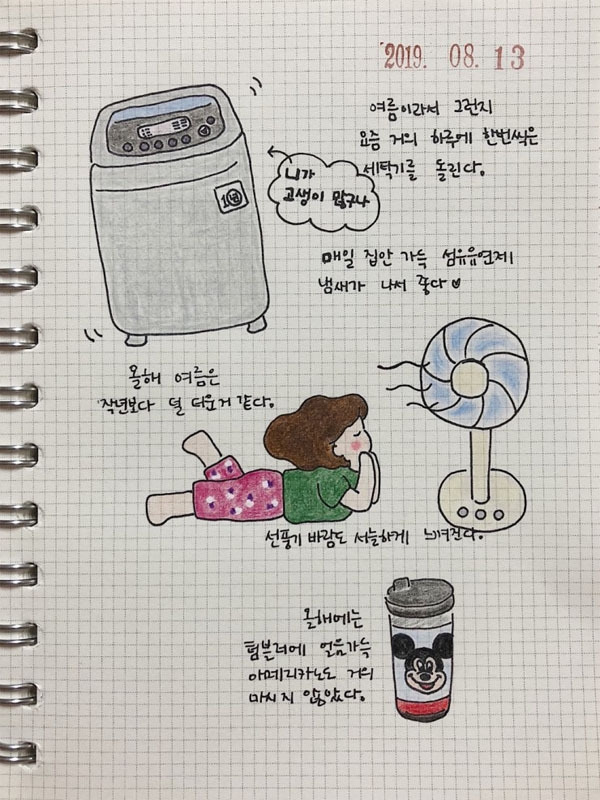 2019. 08. 13
여름이라서 그런지
요즘 거의 하루에 한번씩은
세탁기를 돌린다.
니가
고생이 많구나
10
매일 집안 가득 섬유유연제
냄새가 나서 좋다♥
올해 여름은
작년보다 덜 더운거 같다.
선풍기 바람도 서늘하게 느껴진다.
올해에는
텀블러에 얼음가득
아메리카노도 거의
마시지 않았다.